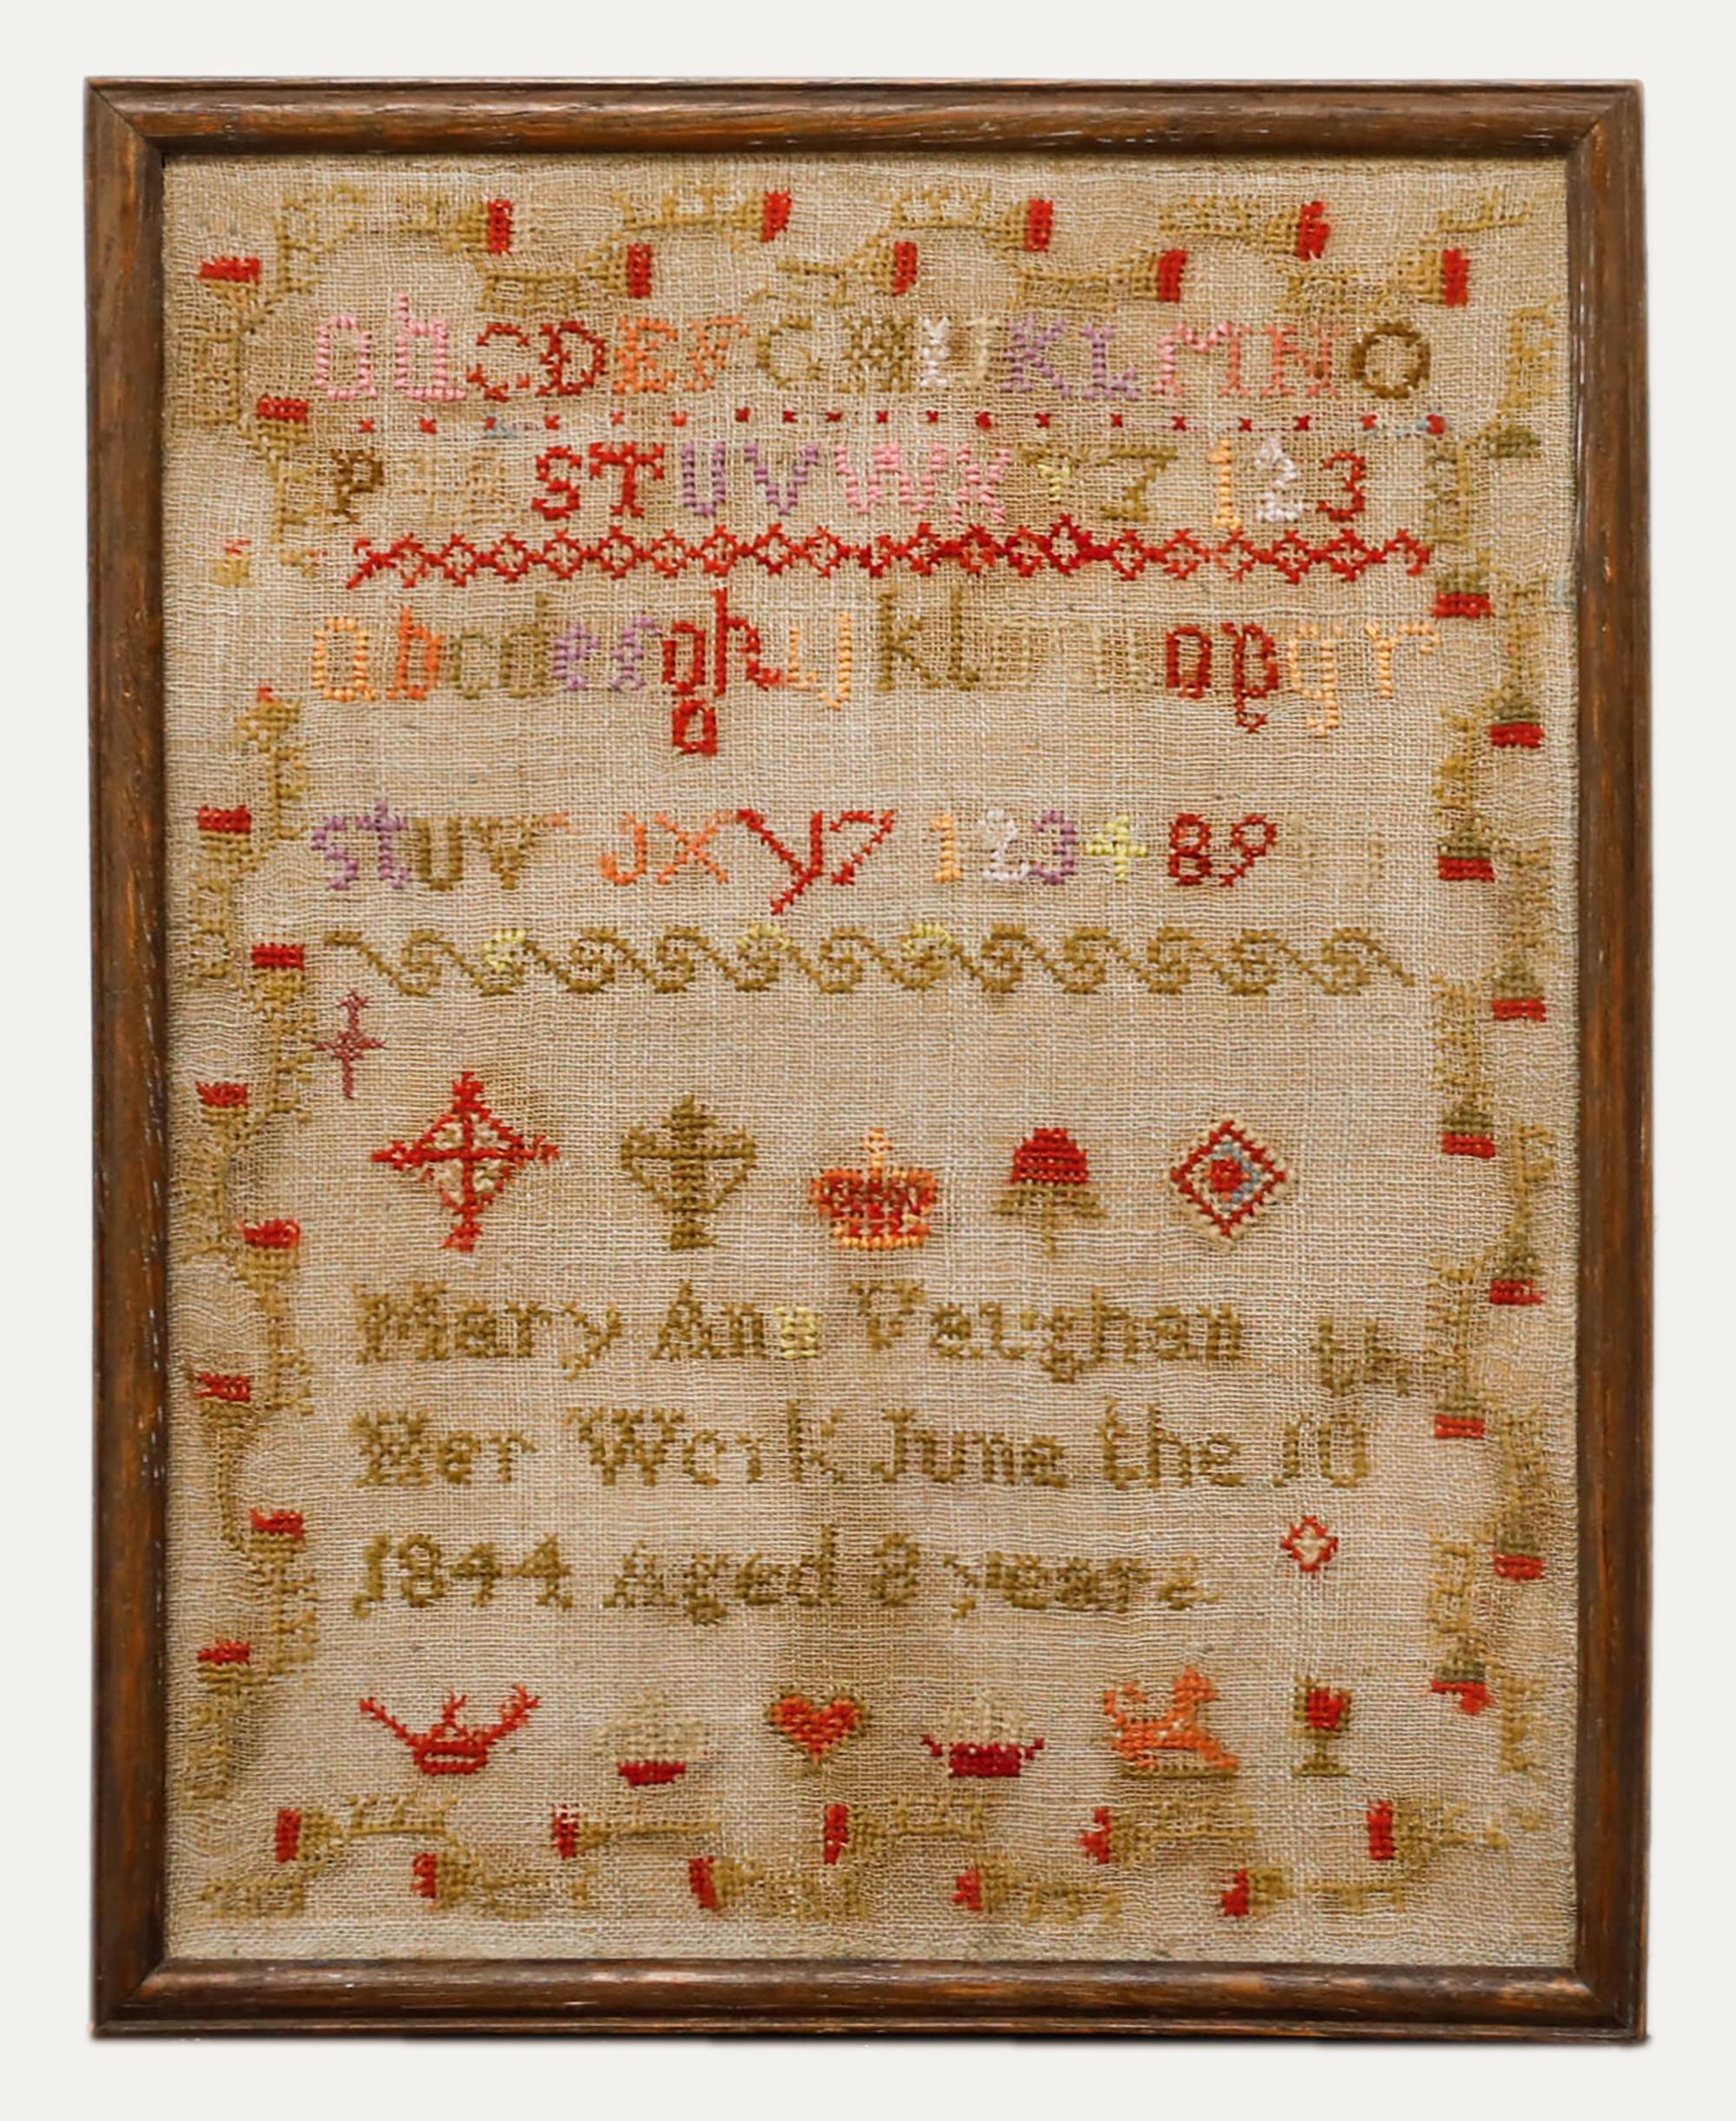 a b C D E F G H I J K L M N O
P S T U V W X Y Z 1 2 3
a b c d e f g h i j k l m n o p q r
s t u v x y z 1 2 3 4 8 9
Mary Ann
Her Work June the 10
1844 Aged 8 years